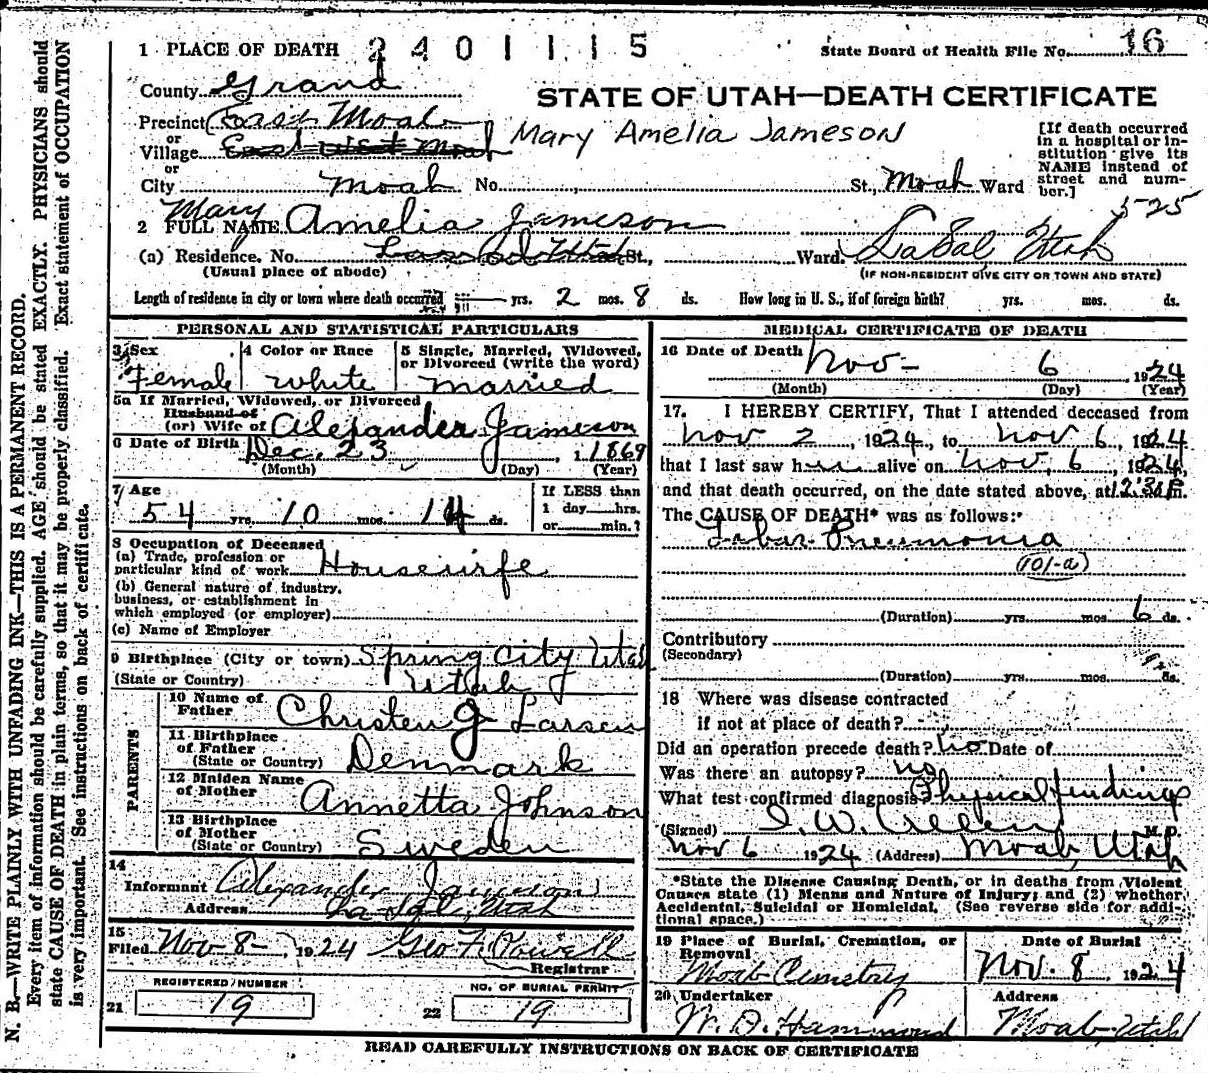 1 PLACE OF DEATH 2401115 State Board of Health File No. 16
County Grand
STATE OF UTAH—DEATH CERTIFICATE
Precinct East Moab
Mary Amelia Jameson
or
Village East West Moab
or
City Moab No. St., Moab Ward
[If death occurred
in a hospital or in-
stitution give its
NAME instead of
street and num-
ber.]
525
2 FULL NAME Mary Amelia Jameson
(a) Residence. No. Lasal Utah St., Ward. LaSal Utah
(Usual place of abode) (IF NON-RESIDENT GIVE CITY OR TOWN AND STATE)
Length of residence in city or town where death occurred yrs. 2 mos. 8 ds. How long in U. S., if of foreign birth? yrs. mos. ds.
PERSONAL AND STATISTICAL PARTICULARS
3 Sex 4 Color or Race 5 Single, Married, Widowed,
or Divorced (write the word)
Female White Married
5a If Married, Widowed, or Divorced
Husband of
(or) Wife of Alejander Jameson
6 Date of Birth Dec. 23, 1869
(Month) (Day) (Year)
7 Age If LESS than
1 day hrs.
54 yrs. 10 mos. 14 ds. or min.?
8 Occupation of Deceased
(a) Trade, profession or
particular kind of work Housewife
(b) General nature of industry,
business, or establishment in
which employed (or employer)
(c) Name of Employer
9 Birthplace (City or town) Spring City Utah
(State or Country) Utah
PARENTS
10 Name of
Father Christen J Larsen
11 Birthplace
of Father
(State or Country) Denmark
12 Maiden Name
of Mother Annetta Johnson
13 Birthplace
of Mother
(State or Country) Sweden
14
Informant Alexander Jameson
Address La Sal, Utah
15
Filed Nov 8—, 1924 Geo F. Powell
Registrar
REGISTERED NUMBER NO. OF BURIAL PERMIT
21 19 22 19
MEDICAL CERTIFICATE OF DEATH
16 Date of Death Nov— 6, 1924
(Month) (Day) (Year)
17. I HEREBY CERTIFY, That I attended deceased from
Nov 2, 1924, to Nov 6, 1924
that I last saw her alive on Nov. 6, 1924,
and that death occurred, on the date stated above, at 12:30 P.m.
The CAUSE OF DEATH* was as follows:
Lobar Pneumonia
(101-a)
(Duration) yrs. mos. 6 ds.
Contributory
(Secondary)
(Duration) yrs. mos. ds.
18 Where was disease contracted
if not at place of death?
Did an operation precede death? no Date of
Was there an autopsy? no
What test confirmed diagnosis? Physical findings
(Signed) I. W. Allen M. D.
Nov 6 1924 (Address) Moab, Utah
*State the Disease Causing Death, or in deaths from Violent
Causes state (1) Means and Nature of Injury; and (2) whether
Accidental, Suicidal or Homicidal. (See reverse side for addi-
tional space.)
19 Place of Burial, Cremation, or Date of Burial
Removal
Moab Cemetery Nov. 8, 1924
20 Undertaker Address
W. D. Hammond Moab, Utah
READ CAREFULLY INSTRUCTIONS ON BACK OF CERTIFICATE
N. B.—WRITE PLAINLY WITH UNFADING INK—THIS IS A PERMANENT RECORD.
Every item of information should be carefully supplied. AGE should be stated EXACTLY. PHYSICIANS should
state CAUSE OF DEATH in plain terms, so that it may be properly classified. Exact statement of OCCUPATION
is very important. See instructions on back of certificate.